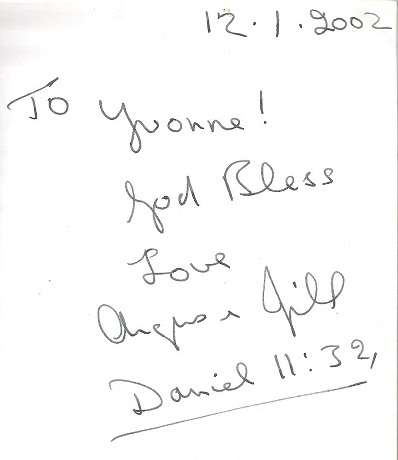 12.1.2002
To Yvonne!
God Bless
Love
Angus & Jill
Daniel 11:32,